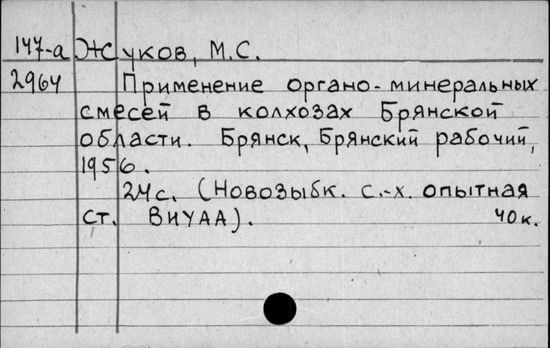 147-а Жуков, М.С.
2964 Применение органо-минеральных
смесей в колхозах Брянской
области. Брянск, Брянский рабочий,
1956.
24с. (Новозыбк. с.-х. опытная
ст. ВИУАА). 40к.